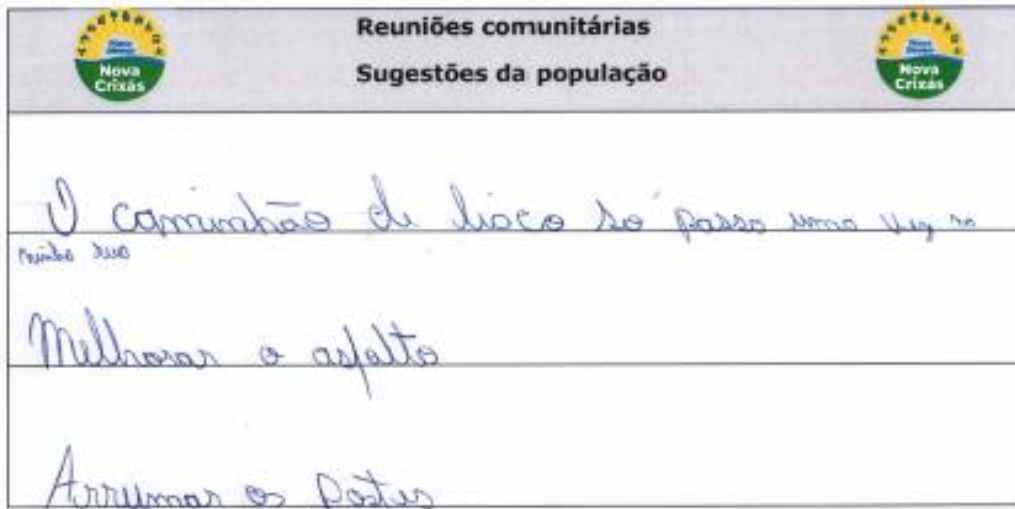 Reuniões comunitárias
Sugestões da população
Nova Crixás
Nova Crixás
O caminhão de lixo só passa uma vez na
minha rua
Melhorar o asfalto
Arrumar os postes